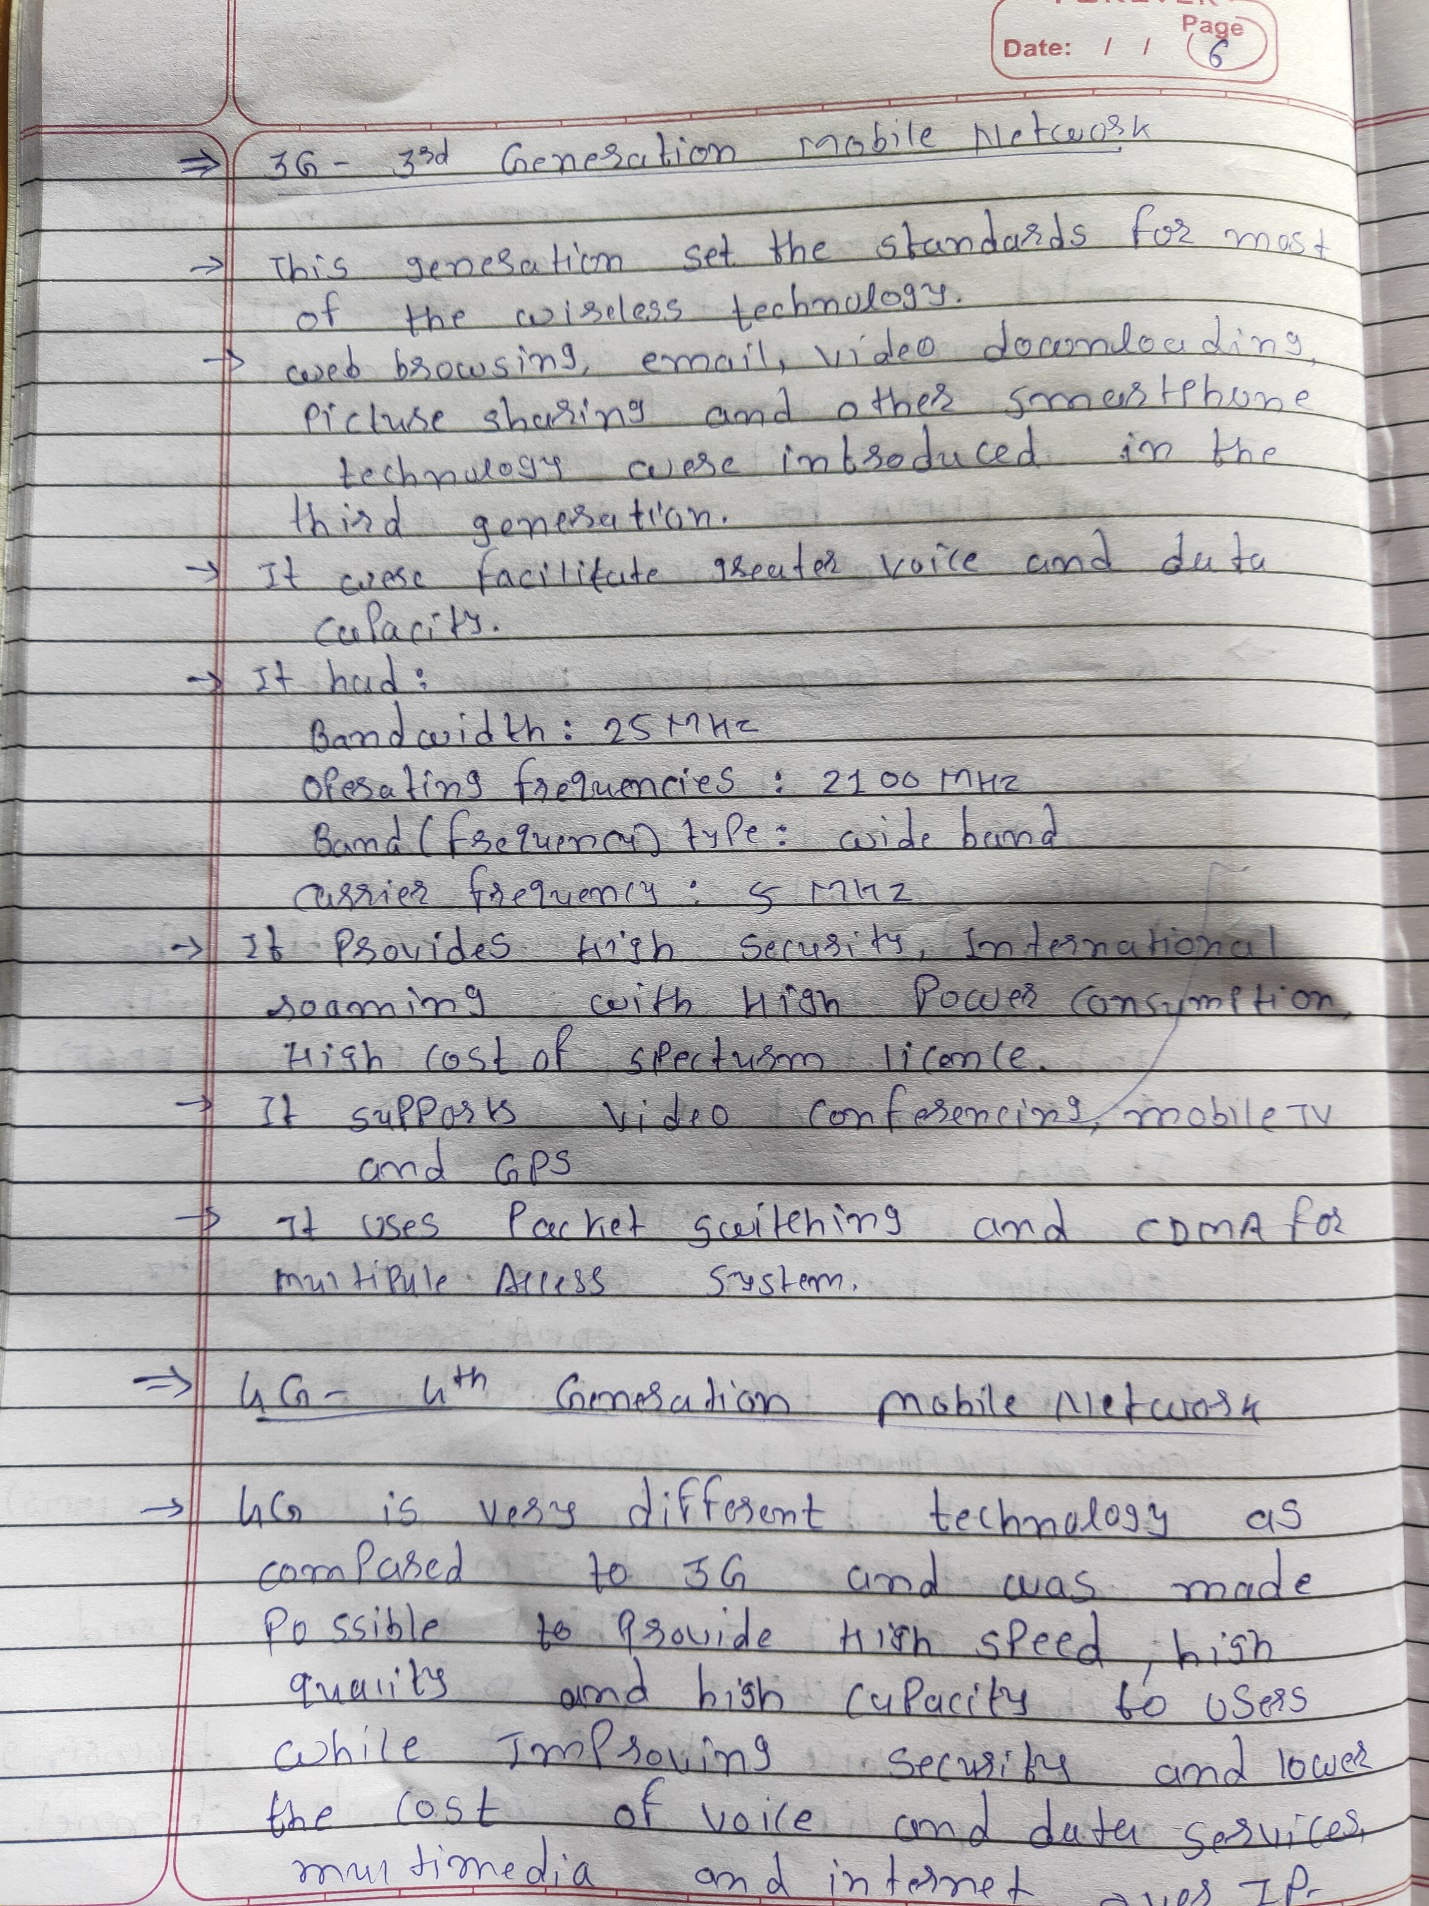 Page
Date: / / 6
⇒ 3G - 3rd Generation mobile Network
→ This generation set the standards for most
of the wireless technology.
→ web browsing, email, video downloading,
Picture sharing and other smartphone
technology were introduced in the
third generation.
→ It were facilitate greater voice and data
capacity.
→ It had:
Bandwidth: 25 MHz
Operating frequencies : 2100 MHz
Band (frequency) type: wide band
carrier frequency : 5 MHz
→ It Provides High Security, International
roaming with High Power Consumption,
High cost of specturm licence.
→ It supports video conferencing, mobile TV
and GPS
→ It uses Packet switching and CDMA for
multipule Access system.
⇒ 4G - 4th Generation mobile Network
→ 4G is very different technology as
compared to 3G and was made
Possible to Provide High speed, high
quality and high capacity to users
while Improving security and lower
the cost of voice and data services,
multimedia and internet over IP-